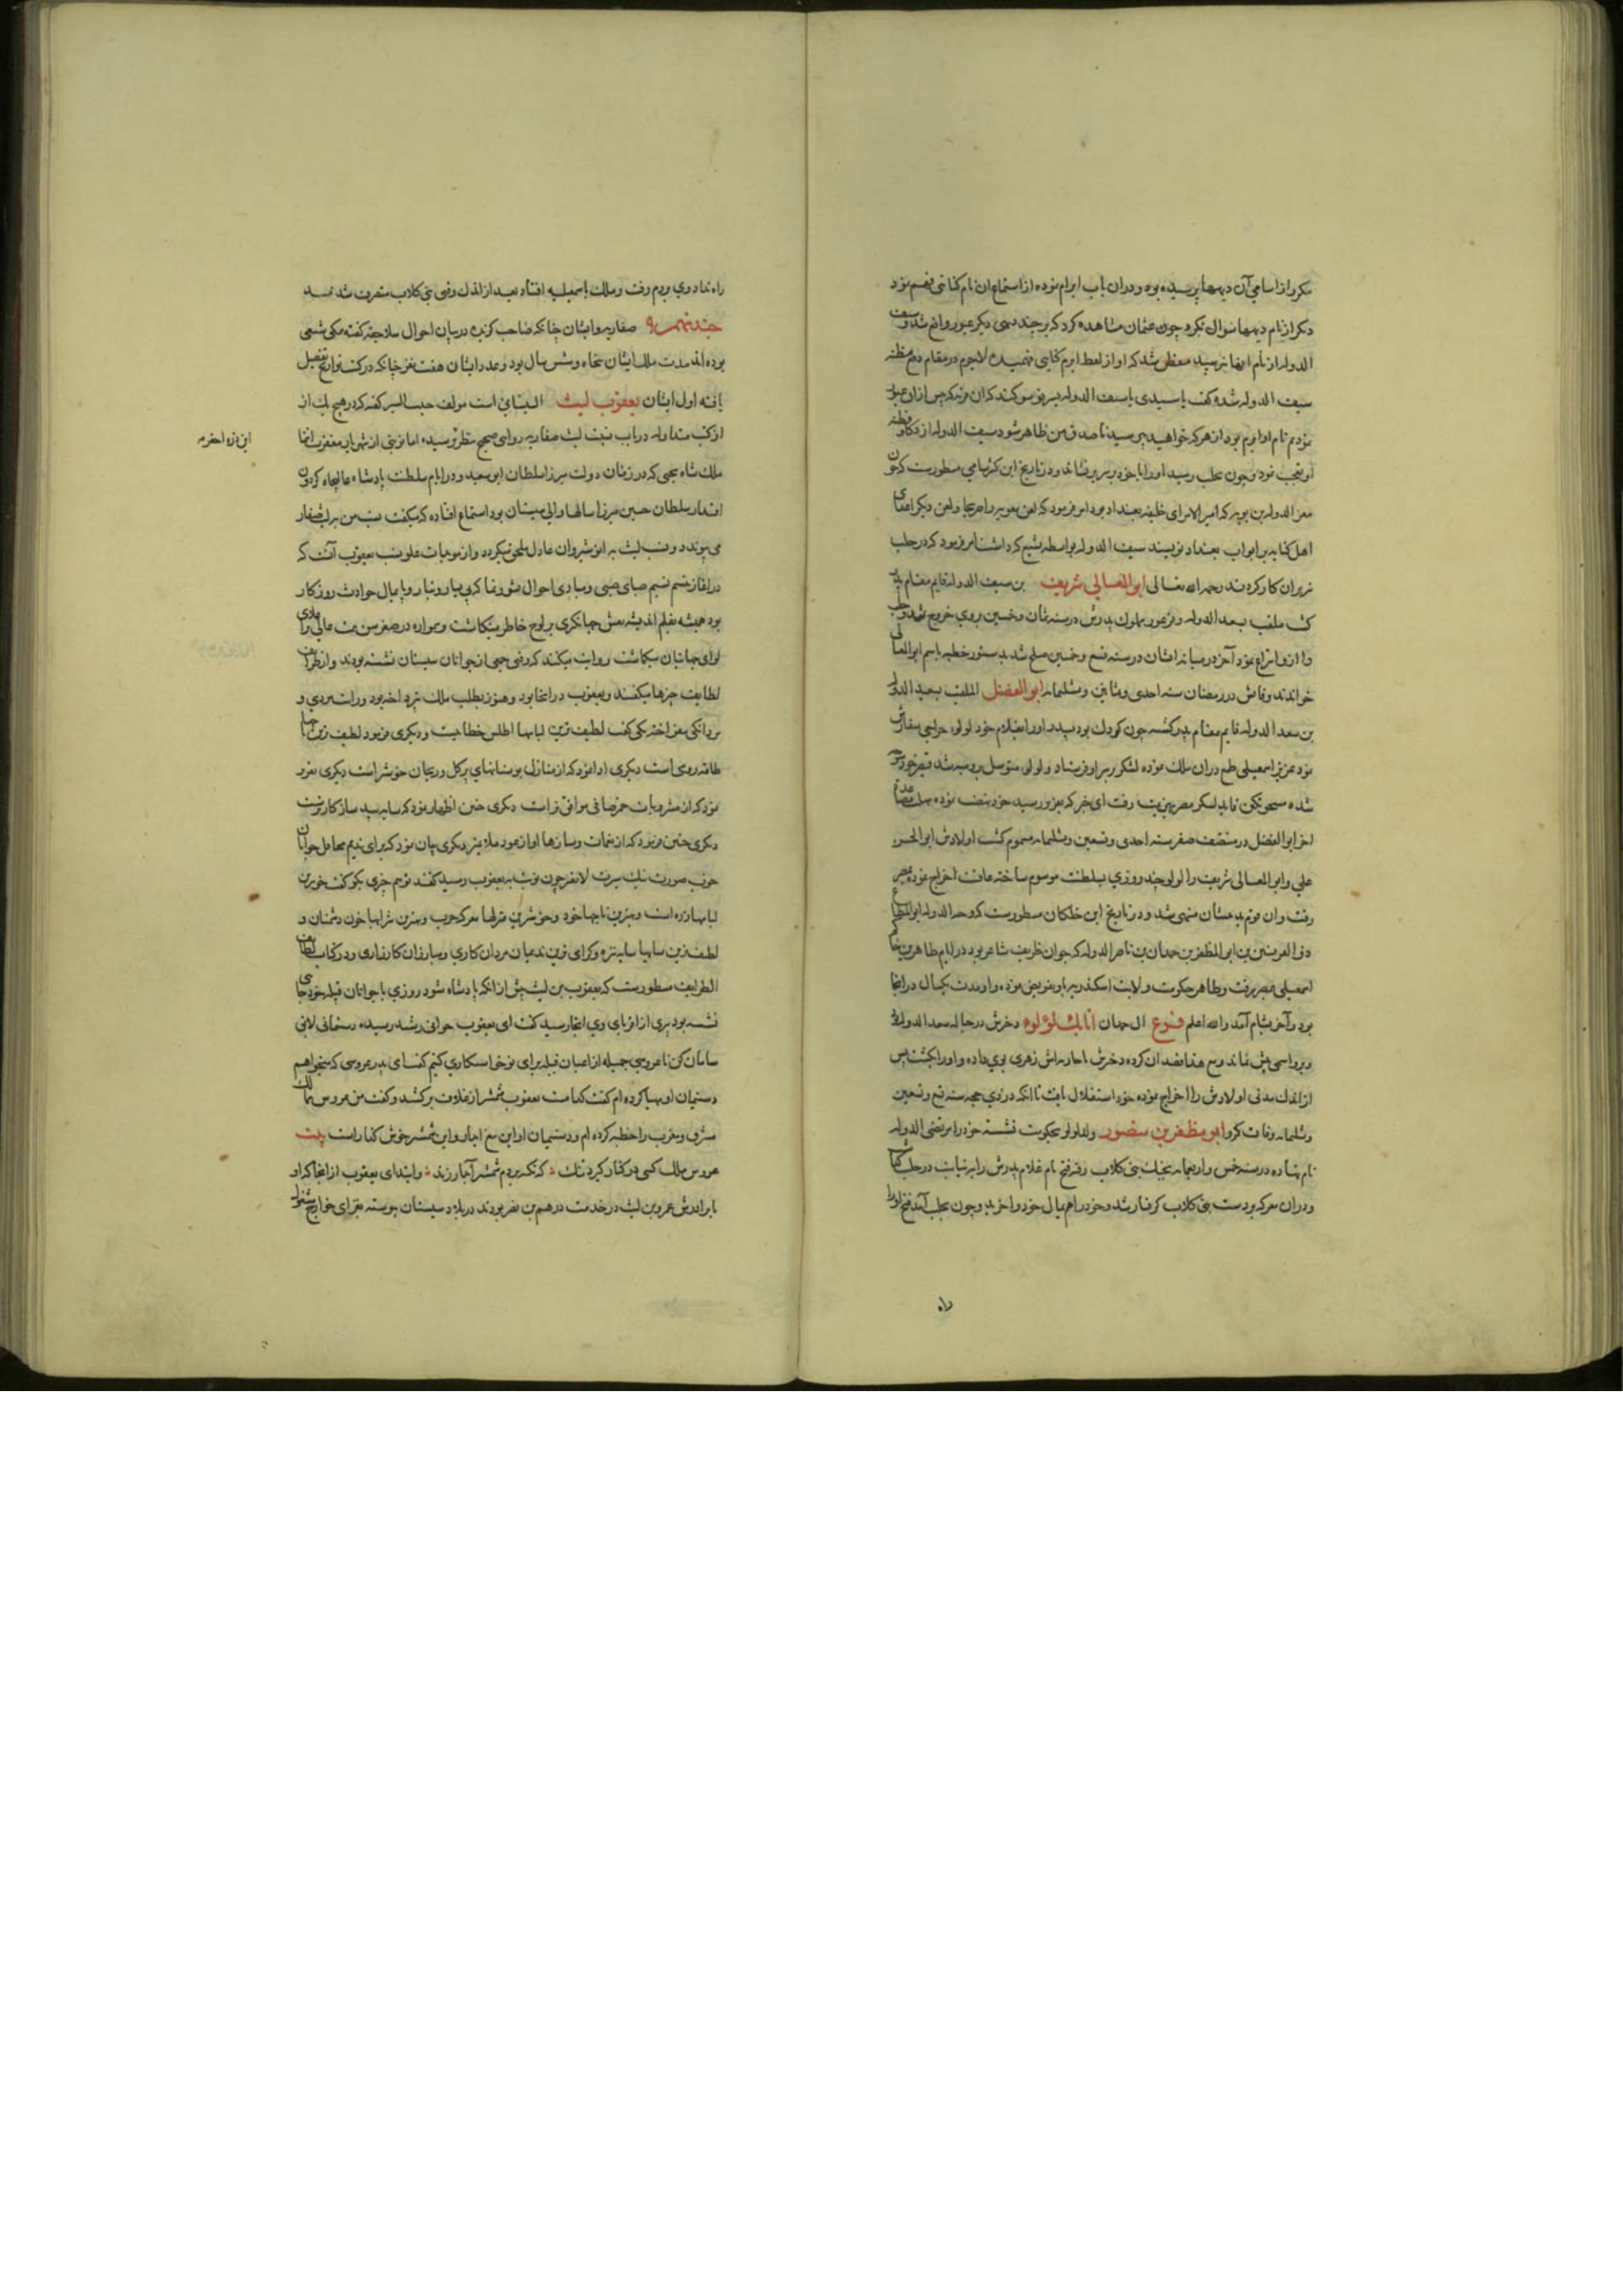 مکرر از اسامی آن دیهها پرسیده بود و دران باب ابرام نموده از استماع ان نام کنایتی فهم نمود
دیکر از نام دیهها سوال نکرد چون عثمان مشاهده کرد که بر چند دیهی دیکر عبور واقع شد و سیف
الدوله از نام انها نپرسید متفطن شد که او از لفظ ابرم کنایتی فهمیده لاجرم در مقام دفع مظنه
سیف الدوله شده کفت یا سیدی یا سیف الدوله بسر تو سوکند که ان قریه که پس ازان عبور
نمودیم نام او ابرم بود از هر که خواهید بپرسید تا صدق من ظاهر شود سیف الدوله از ذکا و فطنه
او تعجب نمود و چون بحلب رسید او را با خود بر سریر نشاند و در تاریخ ابن کثیر شامی مسطورست که چون
معز الدوله بن بویه که امیر الامرای خلیفه بغداد بود امر فرمود که لعن معویه را صریحا و لعن دیکر اعدای
اهل کنایه بر ابواب بغداد نویسند سیف الدوله بواسطه تشیع که داشت امر فرمود که در حلب
نیز بران کار کردند رحمه الله تعالی ابو المعالی شریف بن سیف الدوله قایم مقام پدر
کشت ملقب بسعد الدوله و قرغویه مملوک پدرش در سنه ثمان و خمسین بروی خروج نمود و حلب
را ازو انتزاع نمود آخر در میانه ایشان در سنه تسع و خمسین صلح شد بدستور خطبه باسم ابو المعالی
خواندند وفاتش در رمضان سنه احدی و ثمانین و ثلثمایه ابو الفضل الملقب بسعید الدوله
بن سعد الدوله قایم مقام پدر کشته چون کودک بود پدر او را بغلام خود لولو جراحی سفارش
نمود عزیز اسمعیلی طمع دران ملک نموده لشکر بر سر او فرستاد و لولو متوسل بروم شد قیصر خود متوجه
اخر ابو الفضل در منتصف صفر سنه احدی و تسعین و ثلثمایه مسموم کشت اولادش ابو الحسن
علی و ابو المعالی شریف را لولو چند روزی بسلطنت موسوم ساخته عاقبت اخراج نموده بمصر
رفت و ان قوم بدیشان منتهی شد و در تاریخ ابن خلکان مسطورست که وجه الدوله ابو المطاع
ذو القرنین بن ابی المظفر بن حمدان بن ناصر الدوله که جوان ظریف شاعر بود در ایام ظاهر بن حاکم
اسمعیلی بمصر رفت و ظاهر حکومت ولایت اسکندریه باو تفویض نموده و او مدت یکسال در انجا
بود و آخر بشام آمد والله اعلم فرع ال حمدان اتابک لولوء دخترش در حباله سعد الدوله بود
و برو اسمی بیش نماند و مع هذا قصد ان کرده دخترش را بران داشت زهری بوی داده و او را بکشت پس
از اندک مدتی اولادش را اخراج نموده خود استقلال یافت تا انکه در ذی حجه سنه تسع و تسعین
و ثلثمایه وفات کرد ابو مظفر بن منصور ولد لولو بحکومت نشسته خود را مرتضی الدوله
نام نهاده در سنه خمس و اربعمایه بجنک بنی کلاب رفته فتح نام غلام پدرش را به نیابت در حلب کذاشت
و دران معرکه بدست بنی کلاب کرفتار شد و خود را هم بمال خود واخرید و چون بحلب آمد فتح او را
راه
راه نداد وی بروم رفت و ملک باسمعیلیه افتاد بعد از اندک وقتی بنی کلاب متصرف شدند
جند نهم صفاریه و ایشان چنانکه صاحب کزیده در بیان احوال سلاجقه کفته مکی شیعی
بوده اند مدت ملک ایشان پنجاه و شش سال بود و عدد ایشان هفت نفر چنانکه در کتب تواریخ تفصیل
یافته اول ایشان یعقوب لیث السیستانی است مولف حبیب السیر کفته که در هیچ یک از
از کتب متداوله در باب نسبت لیث صفار بر روایتی صحیح بنظر نرسیده اما نوبتی از شهریار مغفرت انتما
ملک شاه یحیی که در زمان دولت میرزا سلطان ابو سعید و در ایام سلطنت پادشاه عالیجاه کردون
اقتدار سلطان حسین میرزا سالها والی سیستان بود استماع افتاده که میکفت نسب من بلیث صفار
می پیوندد و نسب لیث به انوشیروان عادل ملحق میکردد و از موجبات علو نسب یعقوب آنست که
بود همیشه بقلم اندیشه نقش جهانکیری بر لوح خاطر مینکاشت و همواره در صغر سن همت عالی را بر
لوای جهانبانی میکماشت روایت میکنند که وقتی جمعی از جوانان سیستان نشسته بودند و از طرایف
لطایف چیزها میکفتند و یعقوب در انجا بود و هنوز بطلب ملک نپرداخته بود و رایت مردی و
مردانکی نیفراخته یکی کفت لطیف ترین لباسها اطلس خطاییست و دیکری فرمود لطیف ترین تاجها
طاقه رومی است دیکری ادا نمود که از منازل بوستانهای پر کل و ریحان خوشتر است دیکری تقریر
نمود که از مشروبات خمر صافی موافق تر است دیکری چنین اظهار نمود که سایه بید ساز کارترست
دیکری چنین فرمود که از نغمات و سازها اواز عود ملایم تر دیکری بیان نمود که برای ندیمی محافل جوانان
خوب صورت نیک سیرت لایق تر چون نوبت به یعقوب رسید کفتند تو هم چیزی بکو کفت خوبترین
لباسها زره است و بهترین تاجها خود و خوشترین منزلها معرکه حرب و بهترین شرابها خون دشمنان و
لطیف ترین سایها سایه نیزه و کرامی ترین ندیمان مردان کاری و مبارزان کارزاری و در کتاب لطایف
الطرایف مسطورست که یعقوب بن لیث پیش از انکه پادشاه شود روزی با جوانان قبیله خود جای
نشسته بود پیری از اقربای وی انجا رسید کفت ای یعقوب جوانی رشد رسیده دستمانی لایق
سامان کن تا عروسی جمیله از اعیان قبیله برای تو خواستکاری کنیم کفت ای پدر عروسی که میخواهم
دستیمان او مهیا کرده ام کفت کدامست یعقوب شمشیر از غلاف برکشید و کفت من عروس ممالک
مشرق و مغرب را خطبه کرده ام و دستیمان او این تیغ ابدار و این شمشیر جوشن کذار است بیت
عروس ملک کسی در کنار کیرد تنک که تکیه بر دم شمشیر آبدار زند و ابتدای یعقوب از انجا که او
با برادرش عمرو بن لیث در خدمت درهم بن نضر بودند در بلاد سیستان پیوسته بغزای خوارج مشغول